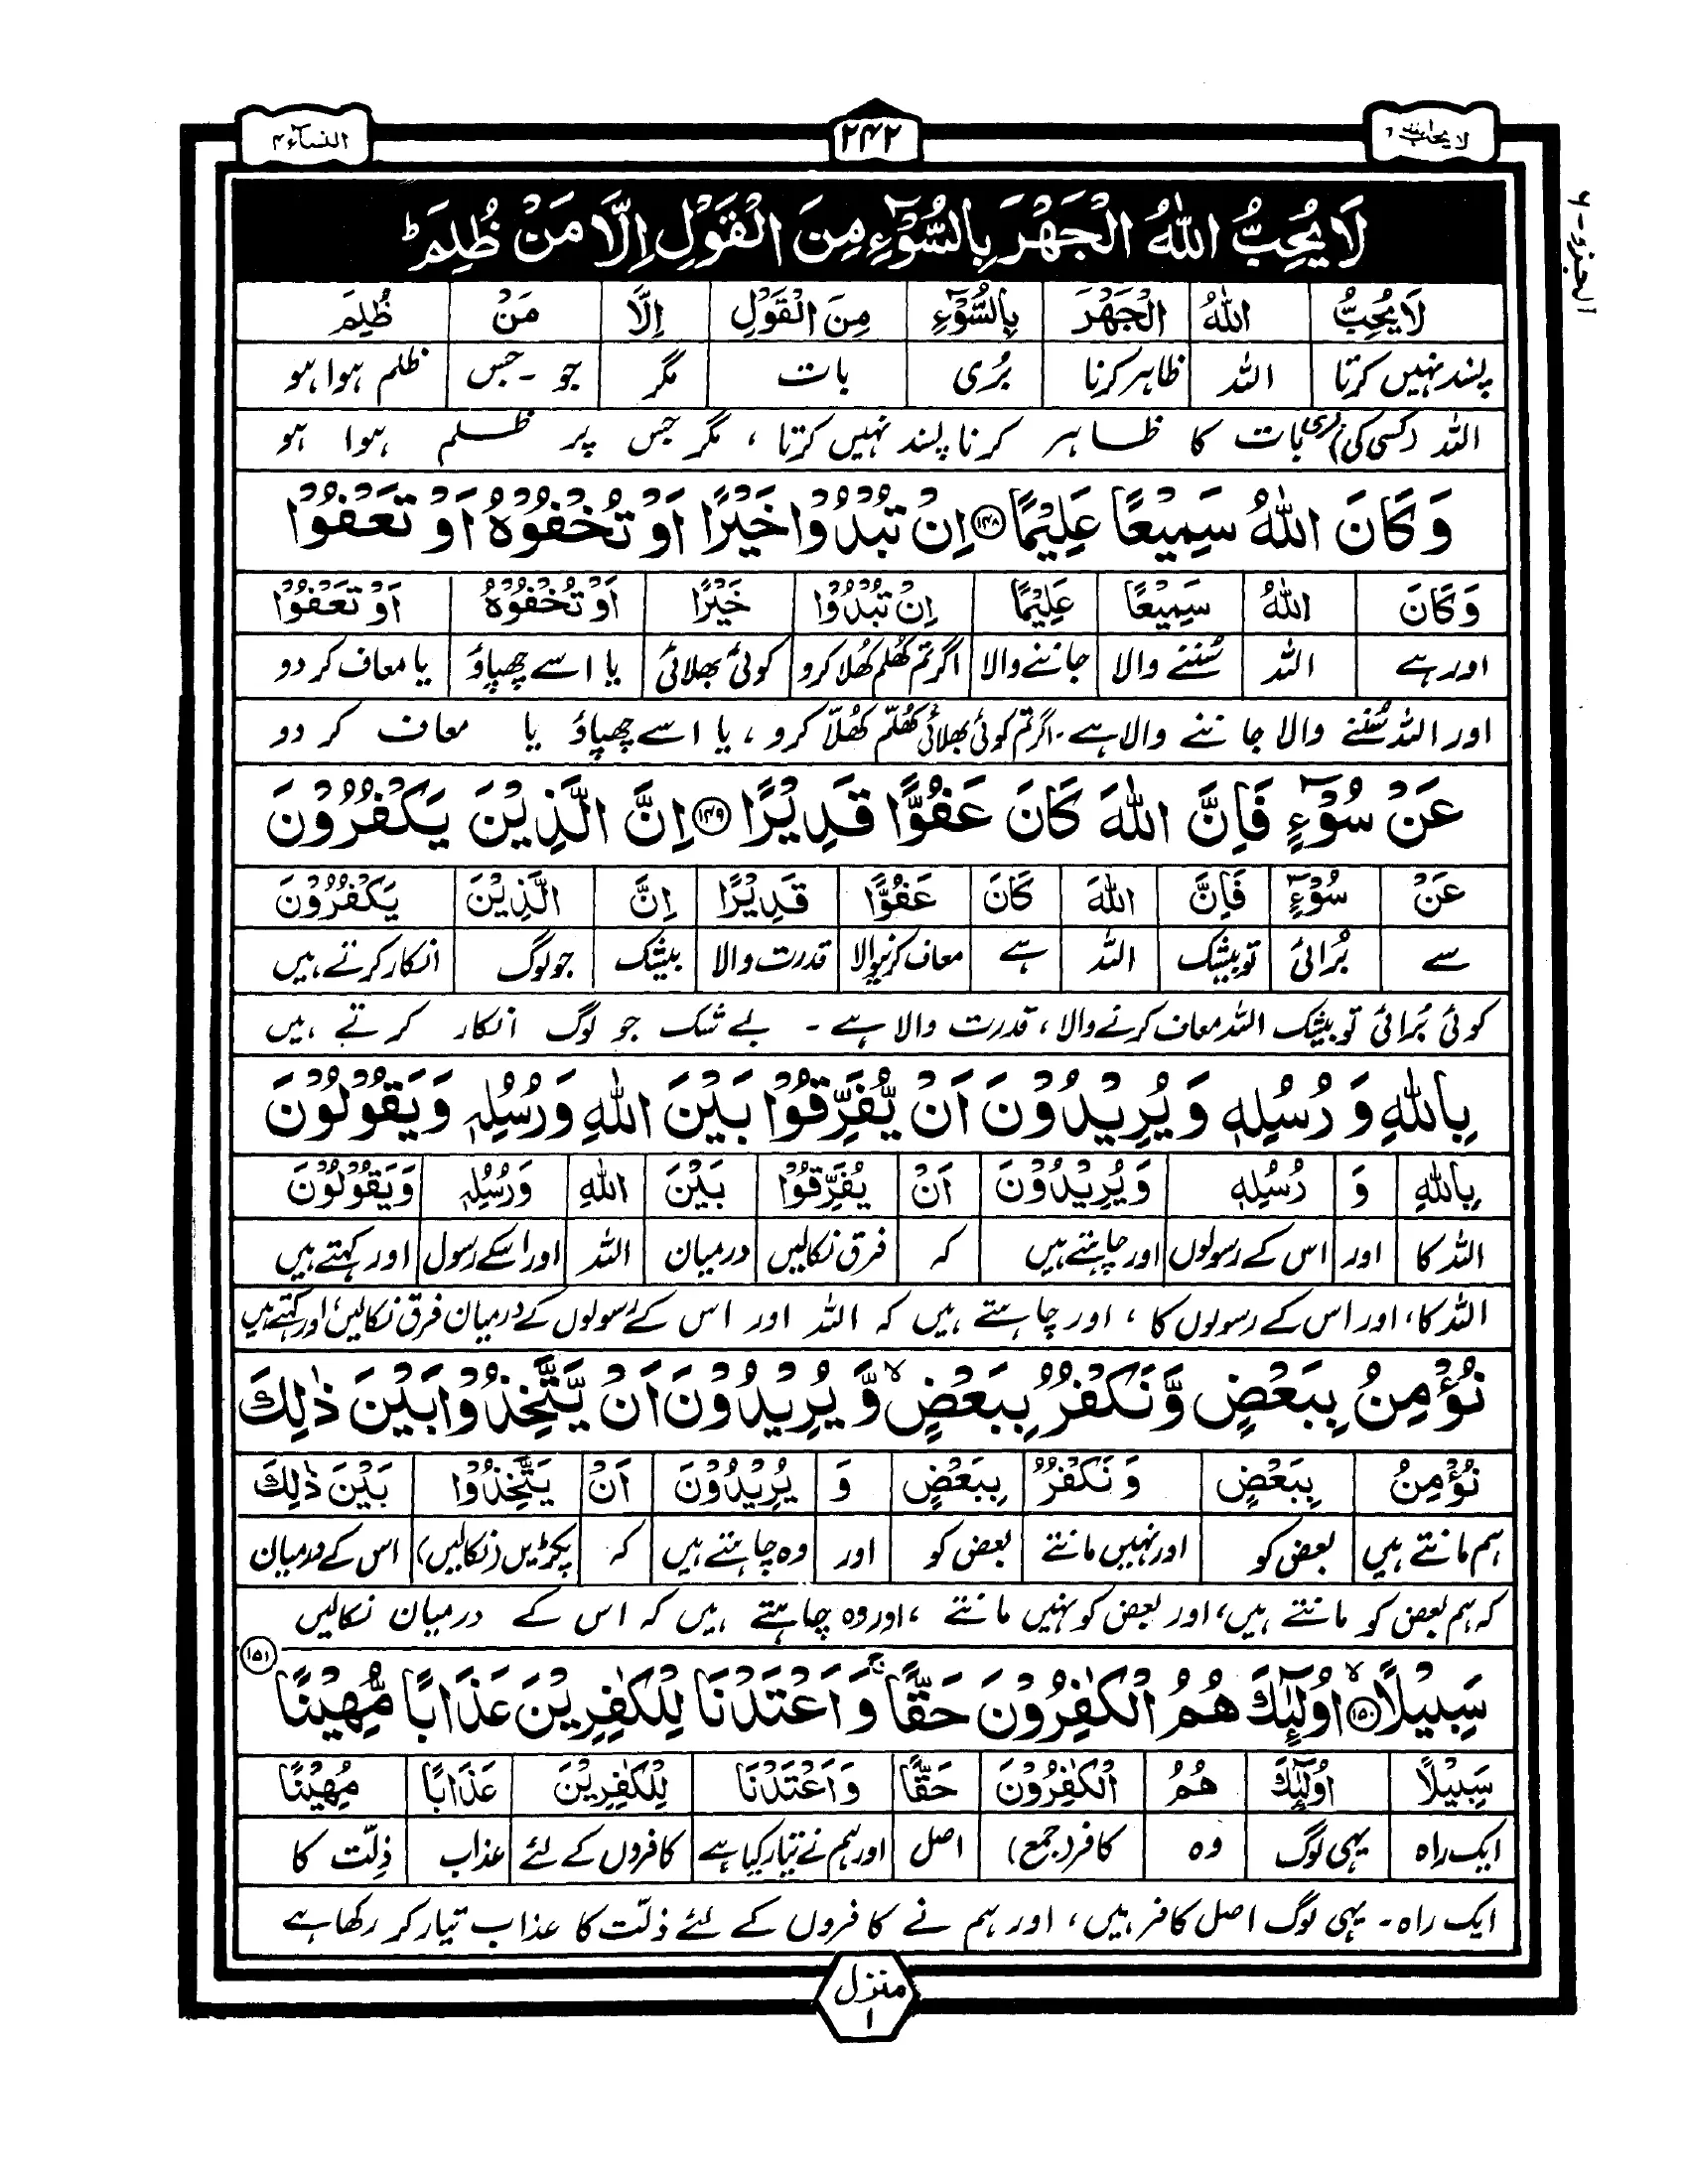 لا يحب الله ٦
٢٤٢
النسآء ٤
الجزو-٦
لَا يُحِبُّ اللّٰهُ الْجَهْرَ بِالسُّوْٓءِ مِنَ الْقَوْلِ اِلَّا مَنْ ظُلِمَ ؕ
لَا يُحِبُّ اللّٰهُ الْجَهْرَ بِالسُّوْٓءِ مِنَ الْقَوْلِ اِلَّا مَنْ ظُلِمَ
پسند نہیں کرتا اللہ ظاہر کرنا بُری بات مگر جو - جس ظلم ہوا ہو
اللہ (کسی کی) بری بات کا ظاہر کرنا پسند نہیں کرتا ، مگر جس پر ظلم ہوا ہو
وَكَانَ اللّٰهُ سَمِيْعًا عَلِيْمًا ﴿١٤٨﴾ اِنْ تُبْدُوْا خَيْرًا اَوْ تُخْفُوْهُ اَوْ تَعْفُوْا
وَكَانَ اللّٰهُ سَمِيْعًا عَلِيْمًا اِنْ تُبْدُوْا خَيْرًا اَوْ تُخْفُوْهُ اَوْ تَعْفُوْا
اور ہے اللہ سُننے والا جاننے والا اگر تم کھُلم کھُلا کرو کوئی بھلائی یا اسے چھپاؤ یا معاف کر دو
اور اللہ سُننے والا جاننے والا ہے۔ اگر تم کوئی بھلائی کھُلّم کھُلّا کرو ، یا اسے چھپاؤ یا معاف کر دو
عَنْ سُوْٓءٍ فَاِنَّ اللّٰهَ كَانَ عَفُوًّا قَدِيْرًا ﴿١٤٩﴾ اِنَّ الَّذِيْنَ يَكْفُرُوْنَ
عَنْ سُوْٓءٍ فَاِنَّ اللّٰهَ كَانَ عَفُوًّا قَدِيْرًا اِنَّ الَّذِيْنَ يَكْفُرُوْنَ
سے بُرائی تو بیشک اللہ ہے معاف کرنیوالا قدرت والا بیشک جو لوگ انکار کرتے ہیں
کوئی بُرائی تو بیشک اللہ معاف کرنے والا ، قدرت والا ہے - بے شک جو لوگ انکار کرتے ہیں
بِاللّٰهِ وَ رُسُلِهٖ وَ يُرِيْدُوْنَ اَنْ يُّفَرِّقُوْا بَيْنَ اللّٰهِ وَ رُسُلِهٖ وَ يَقُوْلُوْنَ
بِاللّٰهِ وَ رُسُلِهٖ وَ يُرِيْدُوْنَ اَنْ يُفَرِّقُوْا بَيْنَ اللّٰهِ وَرُسُلِهٖ وَيَقُوْلُوْنَ
اللہ کا اور اس کے رسولوں اور چاہتے ہیں کہ فرق نکالیں درمیان اللہ اور اسکے رسول اور کہتے ہیں
اللہ کا ، اور اس کے رسولوں کا ، اور چاہتے ہیں کہ اللہ اور اس کے رسولوں کے درمیان فرق نکالیں ، اور کہتے ہیں
نُؤْمِنُ بِبَعْضٍ وَّ نَكْفُرُ بِبَعْضٍ ۙ وَّ يُرِيْدُوْنَ اَنْ يَّتَّخِذُوْا بَيْنَ ذٰلِكَ
نُؤْمِنُ بِبَعْضٍ وَ نَكْفُرُ بِبَعْضٍ وَ يُرِيْدُوْنَ اَنْ يَتَّخِذُوْا بَيْنَ ذٰلِكَ
ہم مانتے ہیں بعض کو اور نہیں مانتے بعض کو اور وہ چاہتے ہیں کہ پکڑیں (نکالیں) اس کے درمیان
کہ ہم بعض کو مانتے ہیں ، اور بعض کو نہیں مانتے ، اور وہ چاہتے ہیں کہ اس کے درمیان نکالیں
سَبِيْلًا ۙ ﴿١٥٠﴾ اُولٰٓئِكَ هُمُ الْكٰفِرُوْنَ حَقًّا ۚ وَ اَعْتَدْنَا لِلْكٰفِرِيْنَ عَذَابًا مُّهِيْنًا ﴿١٥١﴾
سَبِيْلًا اُولٰٓئِكَ هُمُ الْكٰفِرُوْنَ حَقًّا وَ اَعْتَدْنَا لِلْكٰفِرِيْنَ عَذَابًا مُهِيْنًا
ایک راہ یہی لوگ وہ کافر (جمع) اصل اور ہم نے تیار کیا ہے کافروں کے لئے عذاب ذلّت کا
ایک راہ - یہی لوگ اصل کافر ہیں ، اور ہم نے کافروں کے لئے ذلّت کا عذاب تیار کر رکھا ہے
منزل ١